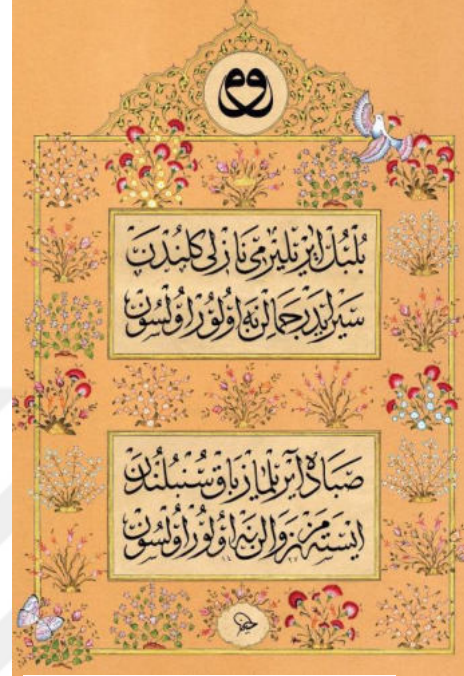 بلبل ایریلیرمی نازلی كلندن
سیر ایدر جمالن نه اولور اولسون
صباده آیریلماز باق سنبلندن
ایسته مز زوالن نه اولور اولسون